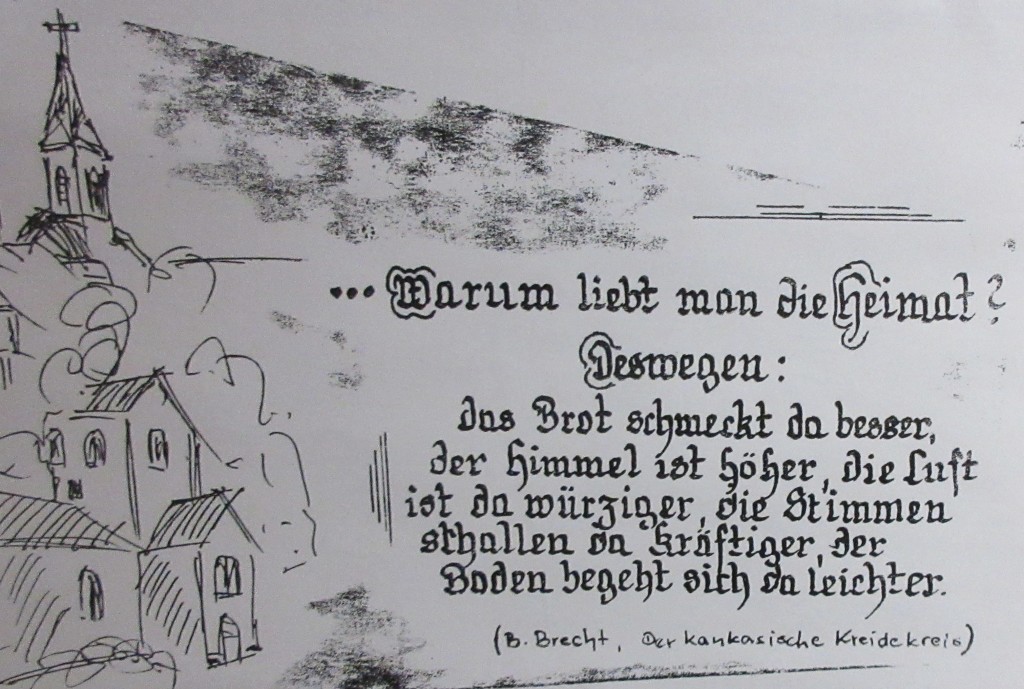 ... Warum liebt man die Heimat?
Deswegen:
das Brot schmeckt da besser,
der Himmel ist höher, die Luft
ist da würziger, die Stimmen
schallen da kräftiger, der
Boden begeht sich da leichter.
(B. Brecht, Der kaukasische Kreidekreis)